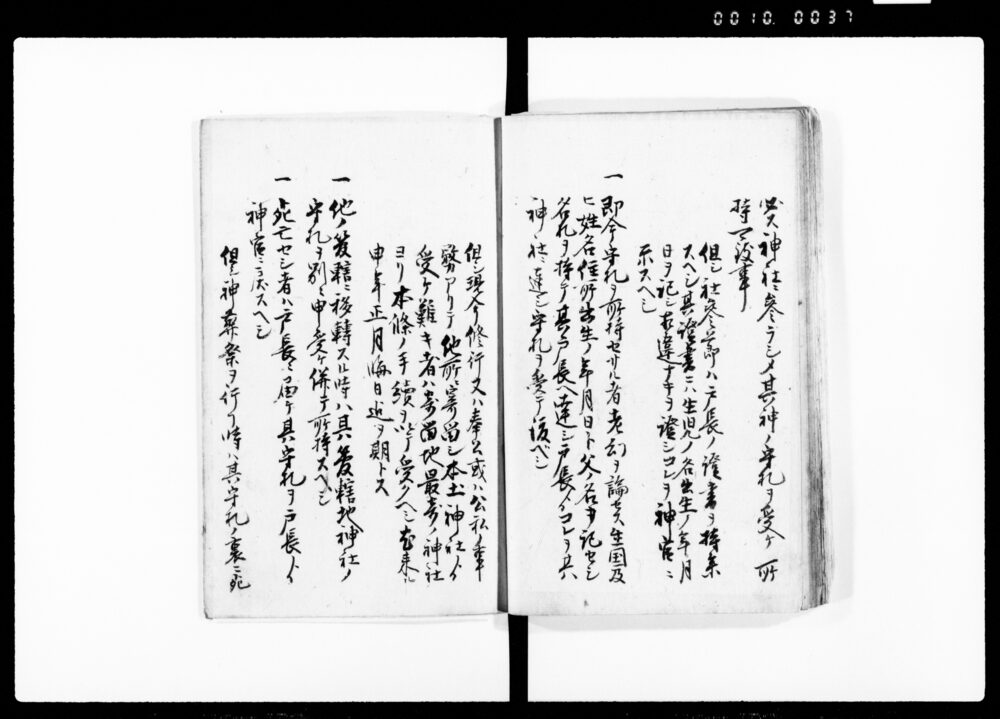 0010. 0037
必ス神社ニ参ラシメ其神ノ守札ヲ受ケ所
持可致事
但シ社参ノ節ハ戸長ノ證書ヲ持参
スヘシ其證書ニハ生児ノ名出生ノ年月
日ヲ記シ相違ナキヲ證シコレヲ神官ニ
示スヘシ
一即今守札ヲ所持セサル者老幼ヲ論セス生国及
ヒ姓名住所出生ノ年月日ト父ノ名ヲ記セシ
名札ヲ持テ其戸長ヘ達シ戸長ヨリコレヲ其
神社ニ達シ守札ヲ受テ渡ベシ
但シ現今修行又ハ奉公或ハ公私ノ事
務アリテ他所ニ寄留シ本土神社ヨリ
受ケ難キ者ハ寄留地最寄ノ神社
ヨリ本條ノ手続ヲ以テ受クヘシ尤来ル
申年正月晦日迄ヲ期トス
一他ノ管轄ニ移轉スル時ハ其管轄地神社ノ
守札ヲ別ニ申受ケ併テ所持スヘシ
一死亡セシ者ハ戸長ニ届ケ其守札ヲ戸長ヨリ
神官ニ戻スヘシ
但シ神葬祭ヲ行フ時ハ其守札ノ裏ニ死